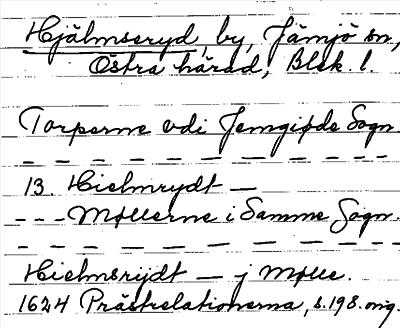 Hjälmseryd, by, Jämjö sn,
Östra härad, Blek. l.
Torperne vdi Jemgiøde Sogn
— — — — — — — — — — — —
13. Hielmrydt —
- - - Møllerne i Samme Sogn.
— — — — — — — — — — — —
Hielmsrijdt — j Mølle.
1624 Prästrelationerna, s. 198. orig.